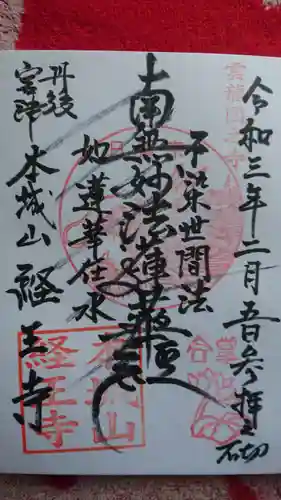 令和三年二月吾日参拝
不染世間法
南無妙法蓮華経
如蓮華在水
丹後
宮津 本城山 経王寺
本城山
経王寺
合掌